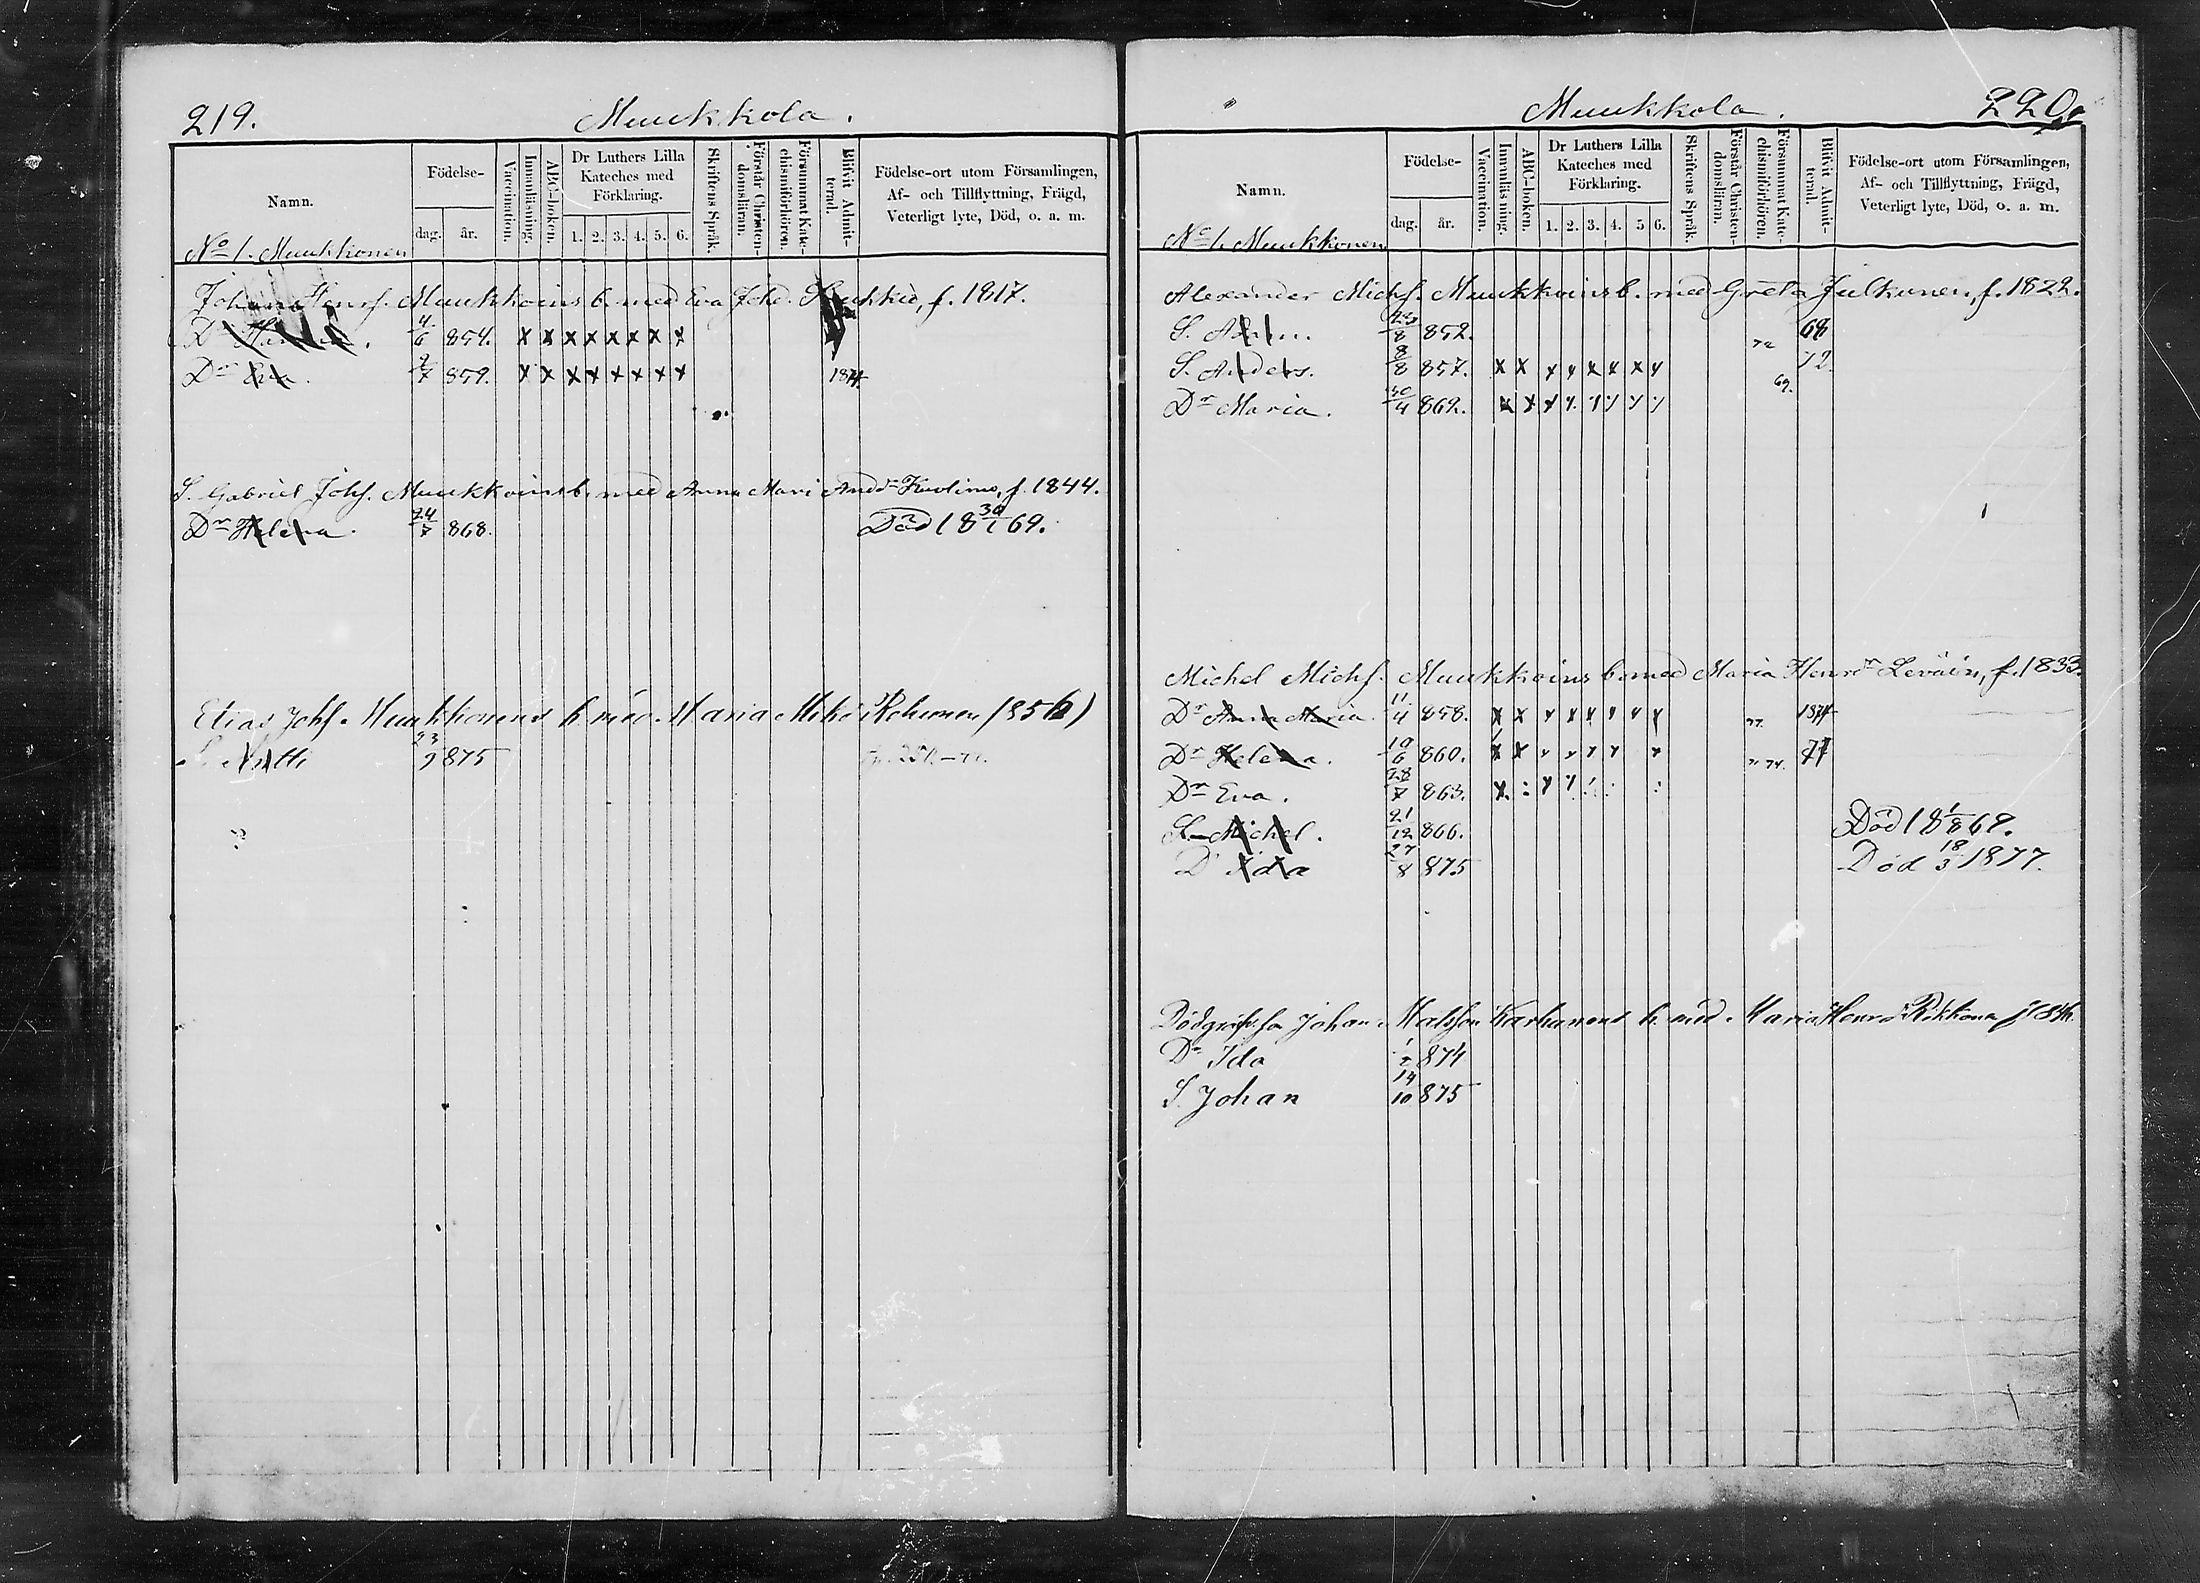 219.
Muukkola.
Namn.
Födelse-
dag.
år.
Vaccination.
Innanläsning.
ABC-boken.
Dr Luthers Lilla Kateches med Förklaring.
1. 2. 3. 4. 5. 6.
Skriftens Språk.
Förstår Christendomsläran.
Försummat Katechismiförhören.
Blifvit Admitterad.
Födelse-ort utom Församlingen,
Af- och Tillflyttning, Frägd,
Veterligt lyte, Död, o. a. m.
No 1. Muukkonen
Johan Henrs. Muukkoins b. med Eva Johd. f. 1817.
Dr 4/6 854. x x x x x x x x
Dr Eva. 2/7 859. x x x x x x x x 1874
S. Gabriel Johs. Muukkoins b. med Anna Mari Andr f. 1844.
Dr Helena. 24/7 868. Död 18 30/1 69.
Elias Johs. Muukkonens b. med Maria Mikd (856)
S. Antti 23/9 875
220.
Muukkola.
Namn.
Födelse-
dag.
år.
Vaccination.
Innanläsning.
ABC-boken.
Dr Luthers Lilla Kateches med Förklaring.
1. 2. 3. 4. 5 6.
Skriftens Språk.
Förstår Christendomsläran.
Försummat Katechismiförhören.
Blifvit Admitterad.
Födelse-ort utom Församlingen,
Af- och Tillflyttning, Frägd,
Veterligt lyte, Död, o. a. m.
No 1. Muukkonen
Alexander Michs. Muukkoins b. med Greta Julkunen, f. 1822.
S. Adam. 23/8 852. 68
S. Anders. 8/8 857. x x x x x x x x 72 72.
Dr Maria. 30/4 862. x x x x x x x x 69.
Michel Michs. Muukkoins b. med Maria Henrdr Leväin, f. 1833.
Dr Anna Maria. 11/4 858. x x x x x x x x 77. 1874
Dr Helena. 10/6 860. x x x x x x x 74. 77
Dr Eva. 28/7 863.
S. Michel. 21/12 866. Död 18 1/8 69.
Dr Ida 27/8 875 Död 18/3 1877.
Johan Matsson Karhunens b. med. Maria Henrd
Dr Ida 874
S. Johan 14/10 875